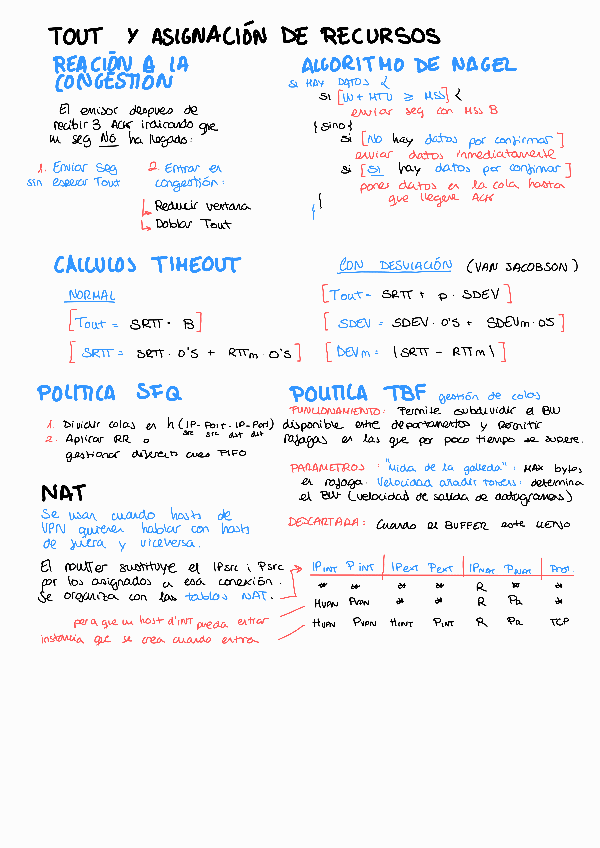 TOUT Y ASIGNACIÓN DE RECURSOS
REACIÓN A LA
CONGESTIÓN
El emisor despues de
recibir 3 ACK indicando que
un seg NO ha llegado:
1. Enviar Seg
sin esperar Tout
2. Entrar en
congestión:
Reducir ventana
Doblar Tout
ALGORITMO DE NAGEL
SI HAY DATOS {
SI [W + MTU ≥ MSS] {
enviar seg con MSS B
{sino}
si [No hay datos por confirmar]
enviar datos inmediatamente
si [Si hay datos por confirmar]
poner datos en la cola hasta
que llegue ACK
{
{
CALCULOS TIMEOUT
NORMAL
[Tout = SRTT · B]
[SRTT = SRTT · 0'5 + RTTm · 0'5]
CON DESVIACIÓN (VAN JACOBSON)
[Tout = SRTT + p · SDEV]
[SDEV = SDEV · 0'5 + SDEVm · 0'5]
[DEVm = |SRTT - RTTm|]
POLITICA SFQ
1. Dividir colas en h (IP - Port - IP - Port)
src src dst dst
2. Aplicar RR o
gestionar diferents cues FIFO
POLITICA TBF gestión de colas
FUNCIONAMIENTO: Permite subdividir el BW
disponible entre departamentos y permitir
rafagas en las que por poco tiempo se supere.
PARAMETROS: "Mida de la galleda": MAX bytes
en rafaga. Velocidad añadir tokens: determina
el BW (velocidad de salida de datogramas)
DESCARTADA: Cuando el BUFFER este LLENO
NAT
Se usan cuando hosts de
VPN quieren hablar con hosts
de fuera y viceversa.
El router sustituye el IPsrc i Psrc
por los asignados a esa conexión.
Se organiza con las tablas NAT.
per a que un host d'INT pueda entrar
instancia que se crea cuando entra
IPINT PINT IPEXT PEXT IPNAT PNAT Prot.
* * * * R * *
HVPN PVPN * * R PR *
HVPN PVPN HINT PINT R PR TCP